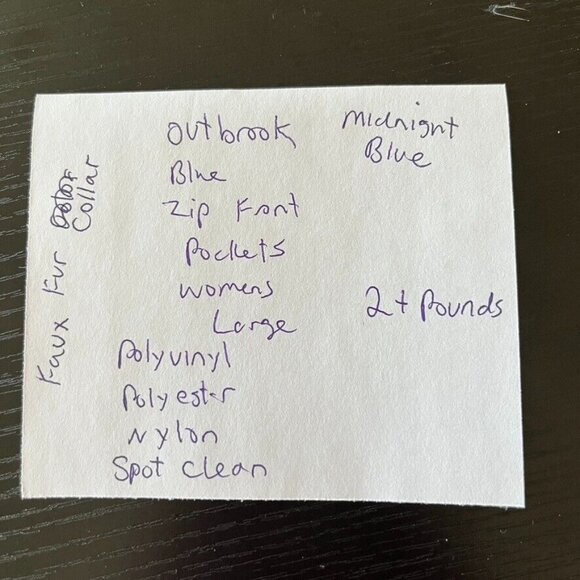 outbrook
Blue
Zip Front
Pockets
womens
Large
Polyvinyl
Polyester
Nylon
Spot clean
Midnight
Blue
2+ Pounds
Faux Fur
Collar